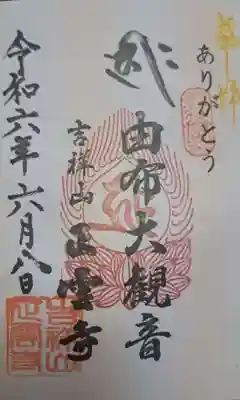 奉拝
ありがとう
由布大観音
吉祥山 正雲寺
令和六年六月八日